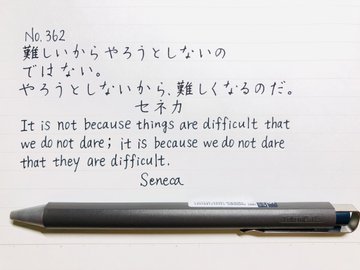 No. 362
難しいからやろうとしないの
ではない。
やろうとしないから、難しくなるのだ。
セネカ
It is not because things are difficult that
we do not dare; it is because we do not dare
that they are difficult.
Seneca